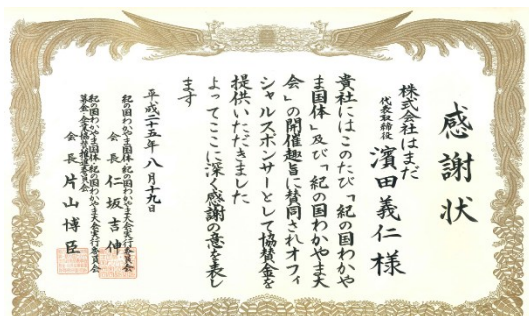 感謝状
株式会社はまだ
代表取締役 濱田義仁様
貴社にはこのたび「紀の国わかや
ま国体」及び「紀の国わかやま大
会」の開催趣旨に賛同されオフィ
シャルスポンサーとして協賛金を
提供いただきました
よってここに深く感謝の意を表し
ます
平成二十五年八月十九日
紀の国わかやま国体・紀の国わかやま大会実行委員会
会長 仁坂吉伸
紀の国わかやま国体・紀の国わかやま大会実行委員会
募金・企業協賛推進委員会
会長 片山博臣